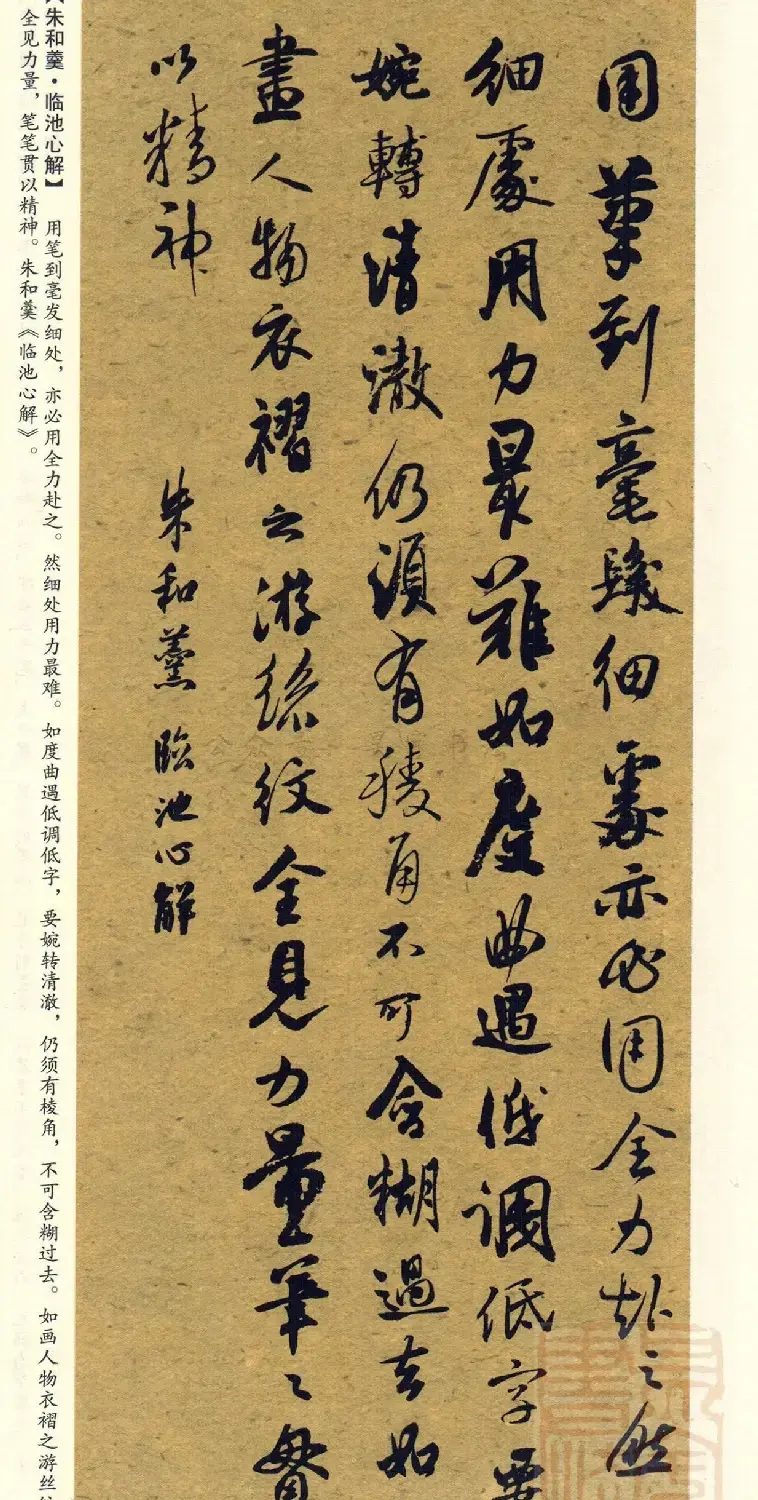 用筆到毫髮細處亦必用全力赴之然
細處用力最難如度曲遇低調低字要
婉轉清澈仍須有稜角不可含糊過去如
畫人物衣褶之游絲紋全見力量筆々貫
以精神
朱和羹臨池心解
朱和羹·临池心解】 用笔到毫发细处，亦必用全力赴之。然细处用力最难。如度曲遇低调低字，要婉转清澈，仍须有棱角，不可含糊过去。如画人物衣褶之游丝
全见力量，笔笔贯以精神。朱和羹《临池心解》。